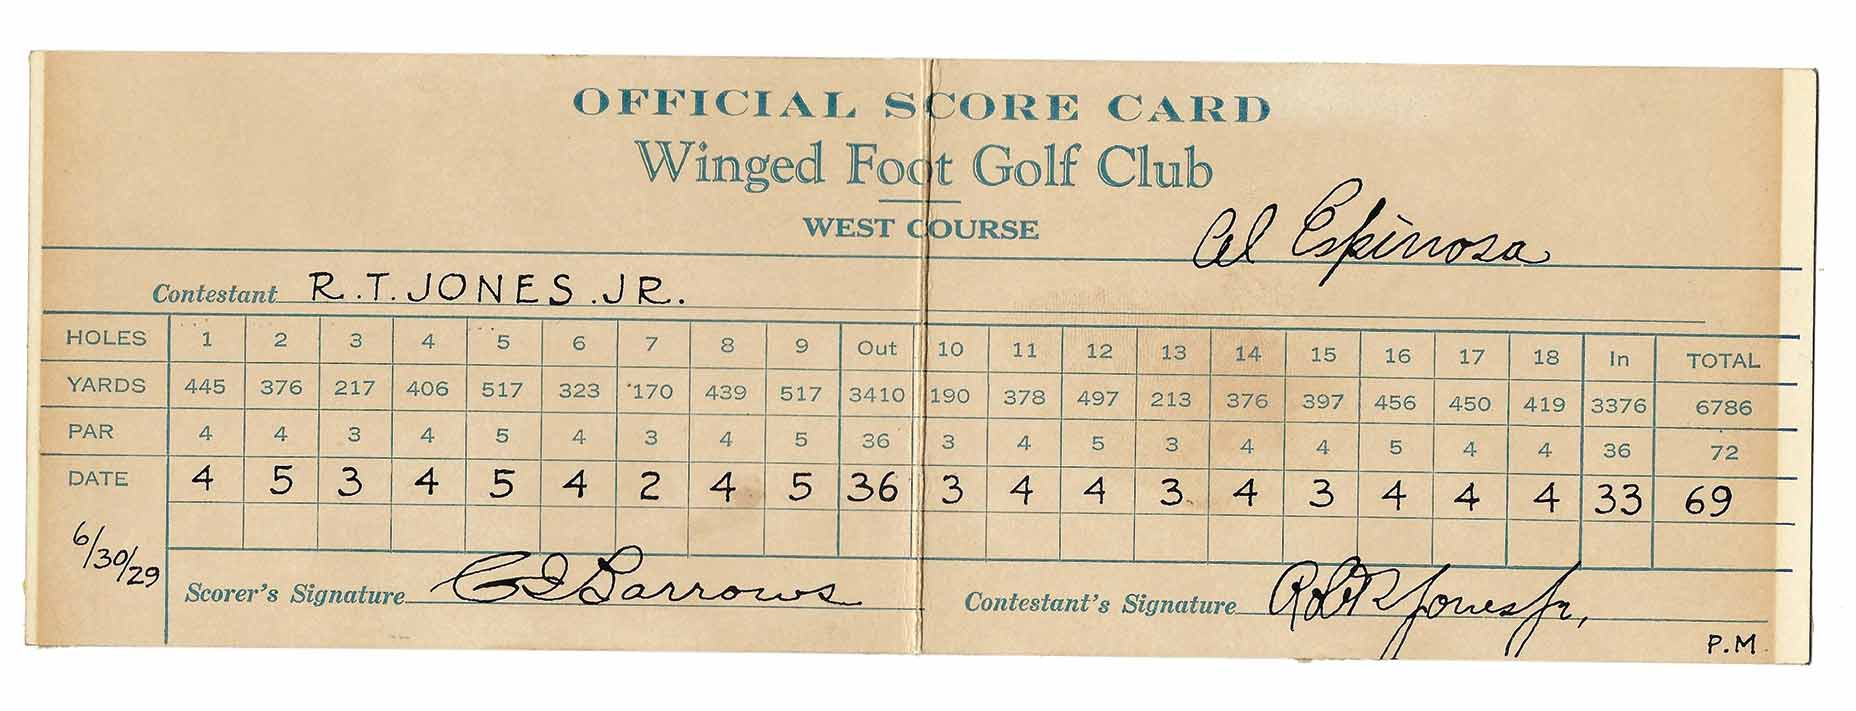 OFFICIAL SCORE CARD
Winged Foot Golf Club
WEST COURSE
Al Espinosa
Contestant R.T. JONES. JR.
HOLES 1 2 3 4 5 6 7 8 9 Out 10 11 12 13 14 15 16 17 18 In TOTAL
YARDS 445 376 217 406 517 323 170 439 517 3410 190 378 497 213 376 397 456 450 419 3376 6786
PAR 4 4 3 4 5 4 3 4 5 36 3 4 5 3 4 4 5 4 4 36 72
DATE 4 5 3 4 5 4 2 4 5 36 3 4 4 3 4 3 4 4 4 33 69
6/30/29
Scorer's Signature Barrows Contestant's Signature Robt Jones Jr,
P.M.